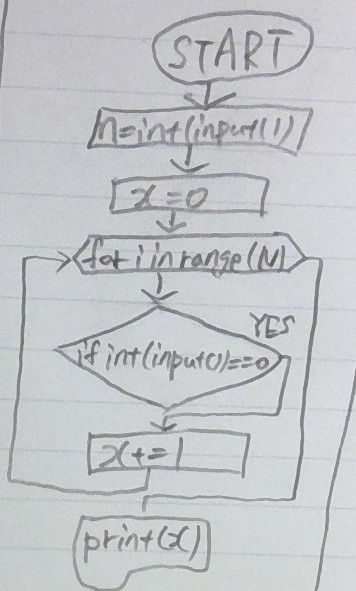 START
n=int(input())
x=0
for i in range(N)
YES
if int(input())==0
x+=1
print(x)